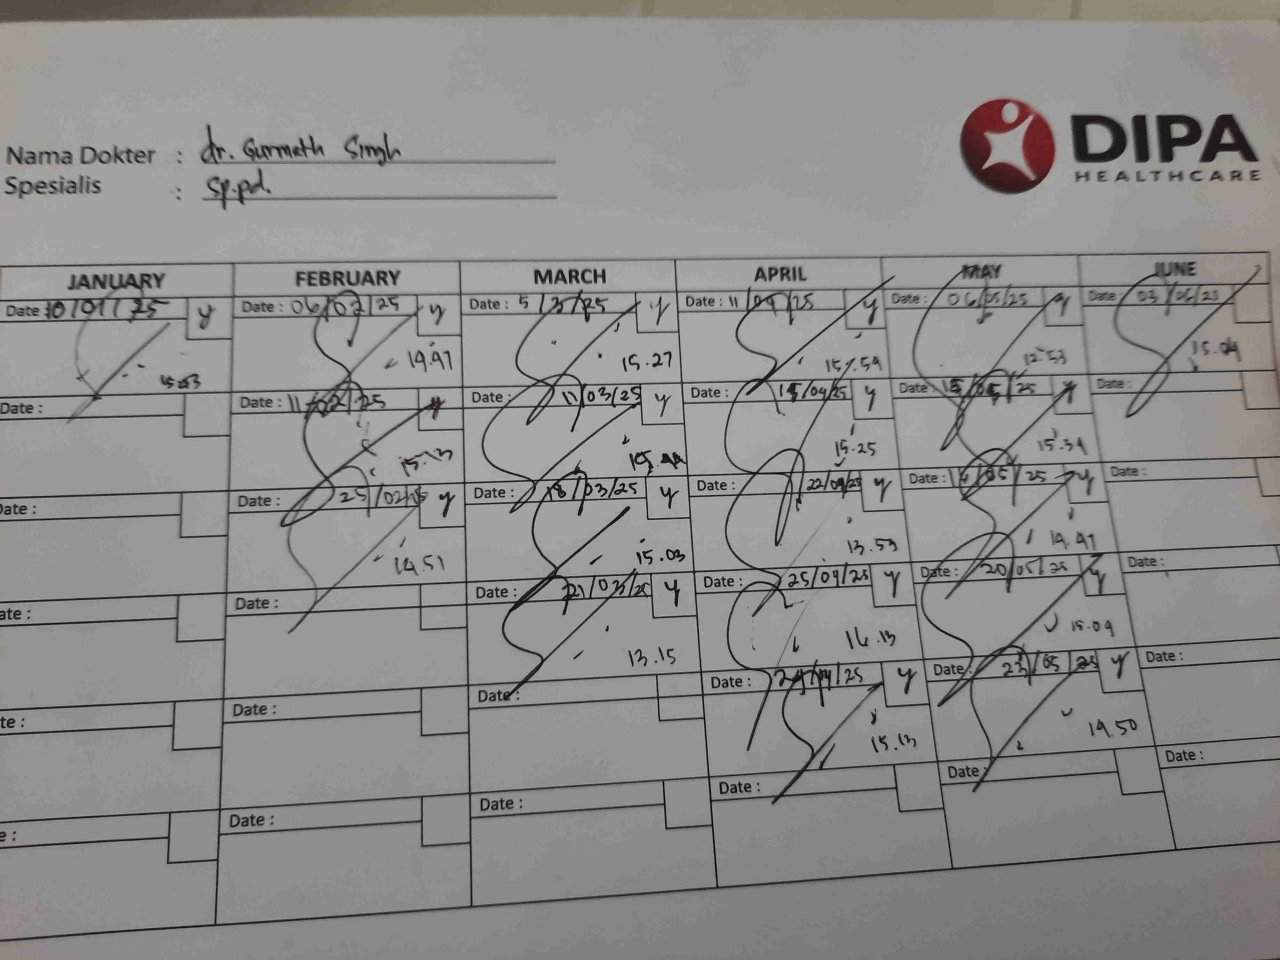 DIPA
HEALTHCARE
Nama Dokter : dr. Gurmeth Singh
Spesialis : Sp.pd.
JANUARY FEBRUARY MARCH APRIL MAY JUNE
Date 10/01/25 y Date : 06/02/25 y Date : 5/3/25 y Date : 11/04/25 y Date : 06/05/25 y Date : 03/06/25
14.47 15.27 15.54 12.53 15.04
Date : Date : 11/02/25 y Date : 11/03/25 y Date : 15/04/25 y Date : 15/05/25 y Date :
15.13 15.25 15.34
Date : Date : 25/02/25 y Date : 18/03/25 y Date : 22/04/25 y Date : /05/25 y Date :
14.51 15.03 13.53 14.47
ate : Date : Date : 21/03/25 y Date : 25/04/25 y Date : 20/05/25 y Date :
13.15 14.13 15.09
te : Date : Date : Date : 29/04/25 y Date : 23/05/25 y Date :
15.13 14.50
e : Date : Date : Date : Date : Date :